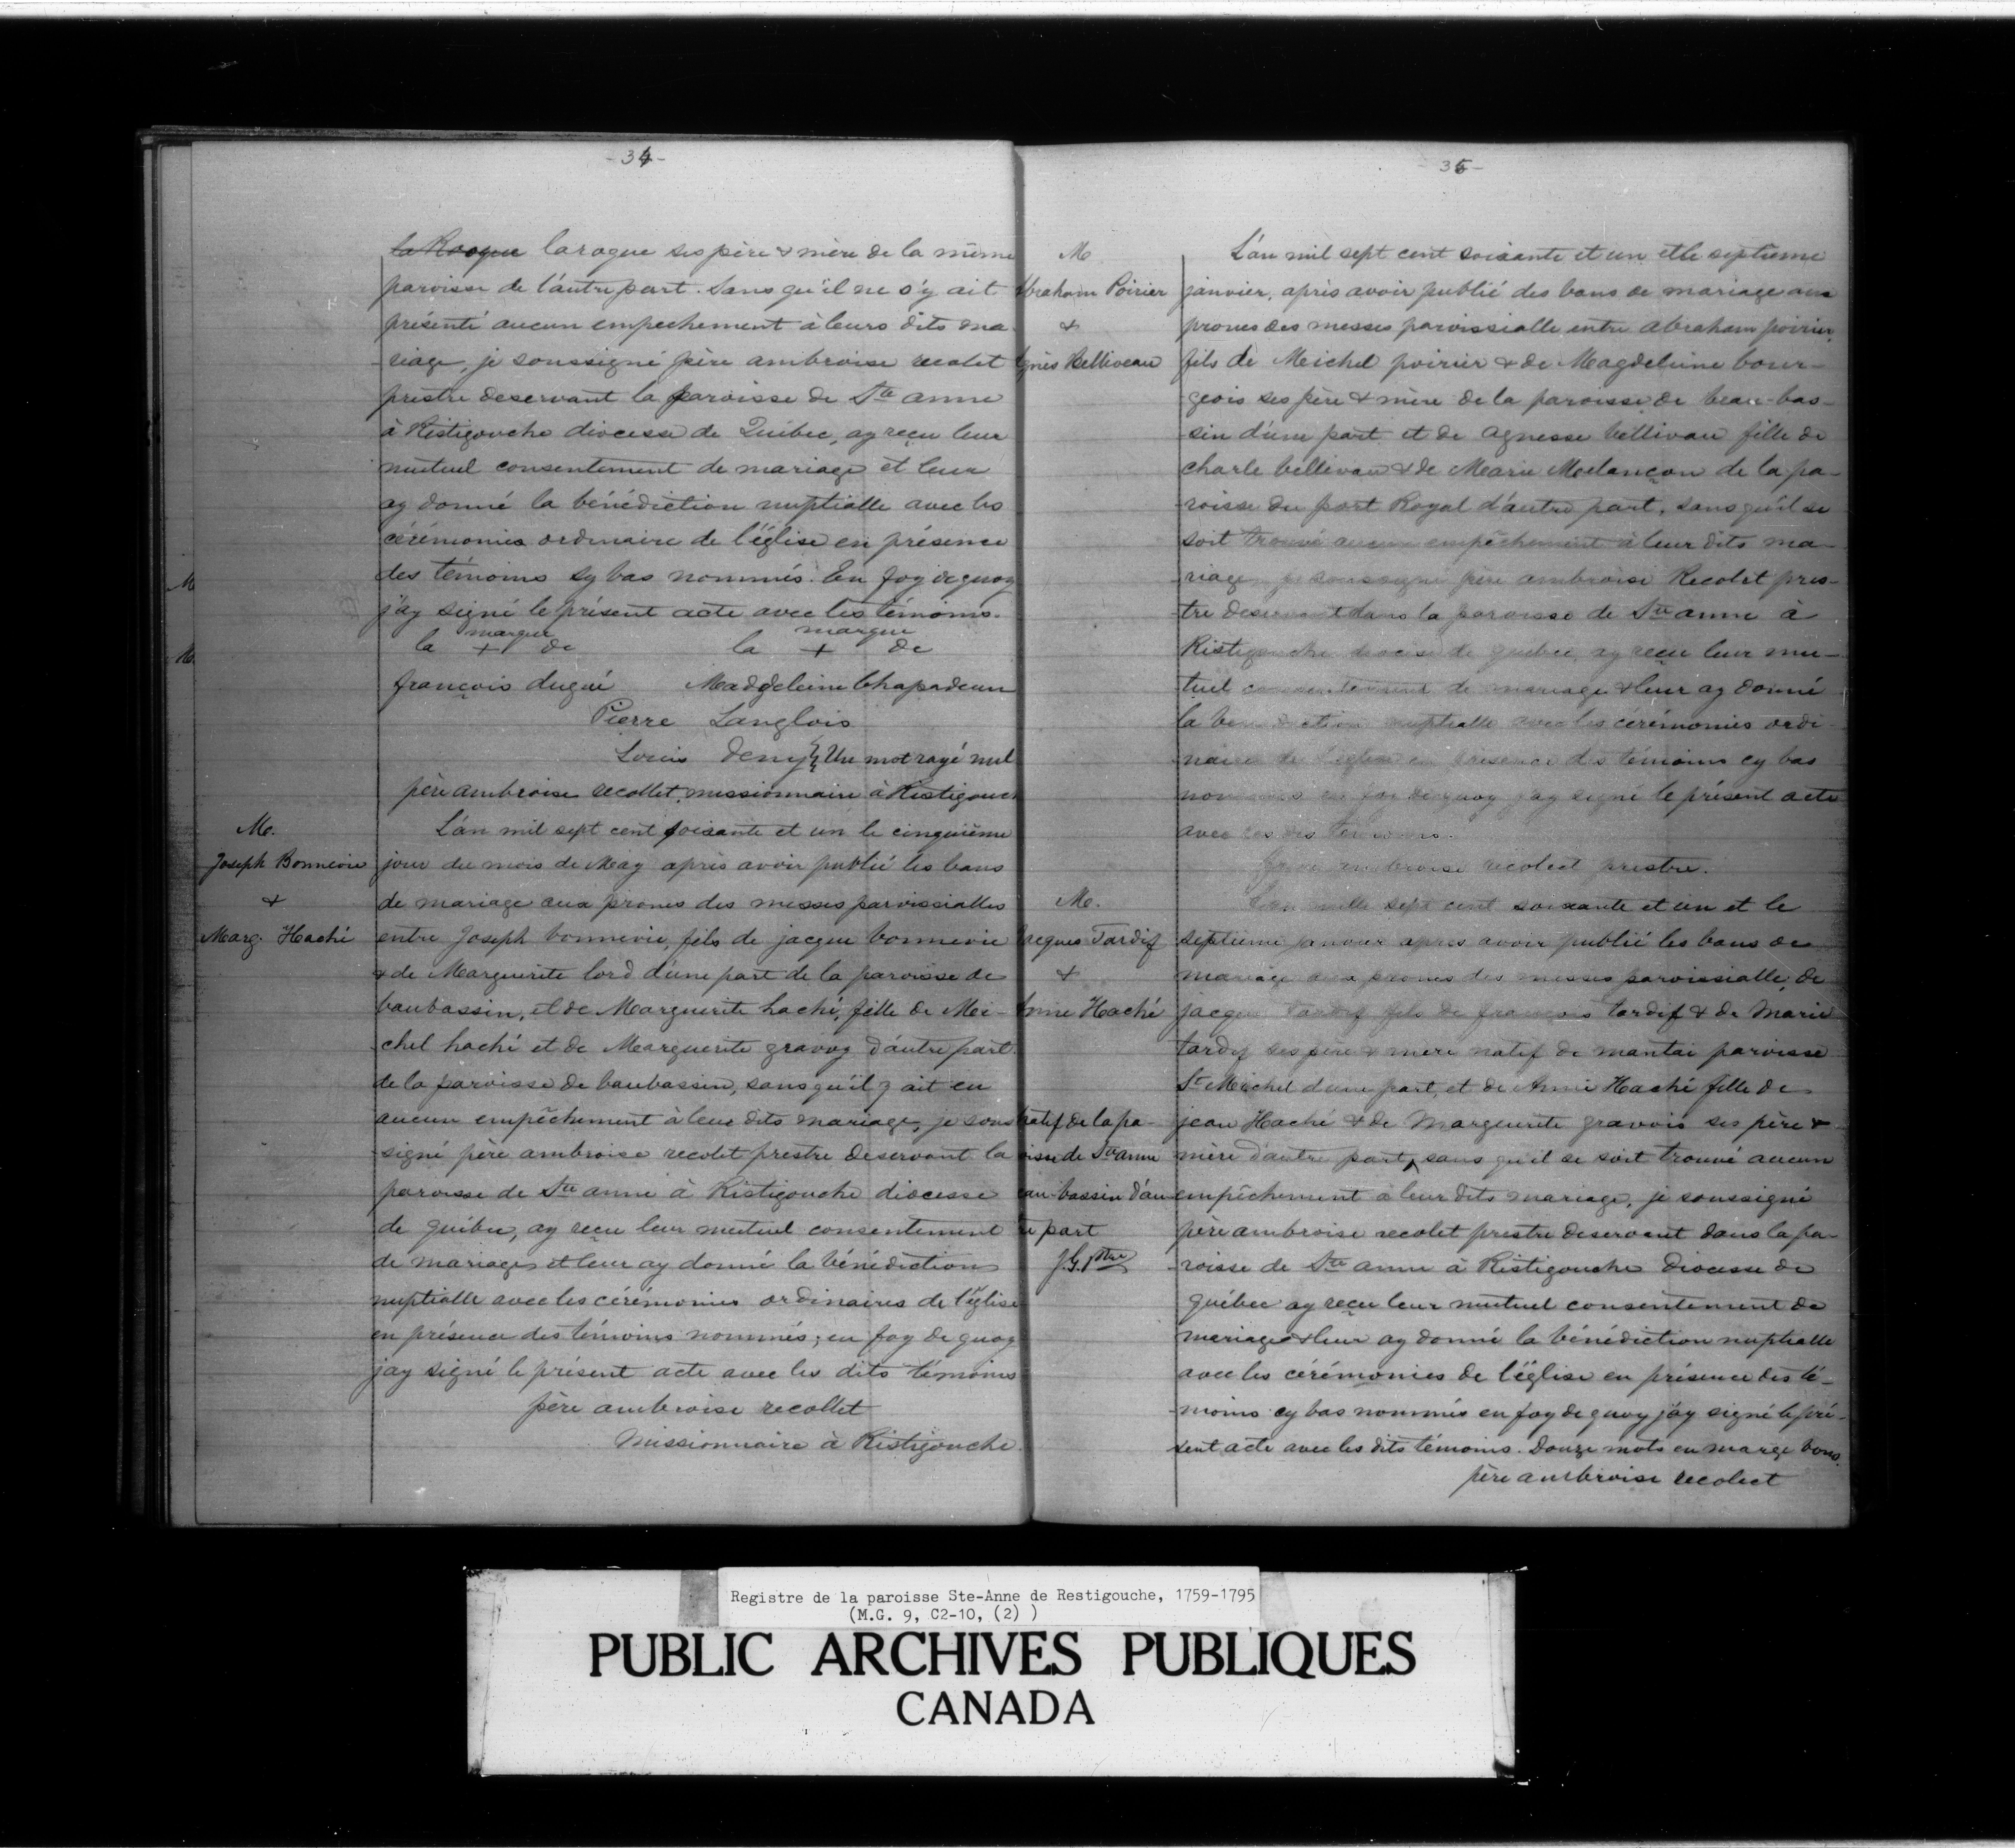 - 34 -
la Rogue larogue ses père & mère de la même
paroisse de l'autre part. Sans qu'il ne s'y ait
présenté aucun empechement à leurs dits ma-
riage, je soussigné père ambroise recolet
prestre deservant la paroisse de Ste anne
à Ristigouche diocesse de Québec, ay reçu leur
mutuel consentement de mariage et leur
ay donné la bénédiction nuptialle avec les
cérémonies ordinaire de l'église en présence
des témoins sy bas nommés. En foy de quoy
j'ay signé le présent acte avec les témoins.
marque marque
la + de la + de
françois dugué Madgeleine Chapadeau
Pierre Langlois
Louis Deny Un mot rayé nul
père ambroise recollet missionnaire à Ristigouch
M.
Joseph Bonnevie
&
Marg. Haché
L'an mil sept cent soixante et un le cinquième
jour du mois de May après avoir publié les bans
de mariage aux prones des messes parvissialles
entre Joseph bonnevie, fils de jacque bonnevie
& de Marguerite lord d'une part de la paroisse de
baubassin, et de Marguerite haché, fille de Mei-
chel haché et de Marguerite gravoy d'autre part
de la paroisse de baubassin, sans qu'il y ait eu
aucun empêchement à leur dits mariage, je sous
signé père ambroise recolet prestre deservant la
paroisse de Ste anne à Ristigouche diocesse
de québec, ay reçu leur mutuel consentement
de mariage et leur ay donné la bénédiction
nuptialle avec les cérémonies ordinaires de l'église
en présence des témoins nommés; en foy de quoy
jay signé le présent acte avec les dits témoins
père ambroise recollet
Missionnaire à Ristigouche.
M
M.
- 35 -
M
Abraham Poirier
&
Agnès Belliveau
L'an mil sept cent soixante et un et le septieme
janvier, après avoir publié des bans de mariage aux
prones des messes parvissialle entre abraham poirier,
fils de Meichel poirier & de Magdeleine bour-
geois ses père & mère de la paroisse de beau-bas-
sin d'une part et de agnesse bellivau fille de
charle bellivau & de Marie Melançon de la pa-
roisse du port Royal d'autre part, sans qu'il se
soit trouvé aucun empêchement à leur dits ma-
riage, je soussigné père ambroise Recolet pres-
tre deservant dans la paroisse de Ste anne à
Ristigouche diocese de quebec, ay reçu leur mu-
tuel consentement de mariage & leur ay donné
la benediction nuptialle avec les cérémonies ordi-
naire de l'eglise en présence des témoins cy bas
nommés en foi de quoy j'ay signé le présent acte
avec ces dits témoins.
père ambroise recolect prestre.
M.
Jacques Tardif
&
Anne Haché
L'an mille sept cent soixante et un et le
septieme janvier apres avoir publié les bans de
mariage aux prones des messes parvissialle, de
jacque tardif fils de françois tardif & de Marie
tardif ses père & mere natif de mantai paroisse
St Meichel d'une part, et de Anne Haché fille de
jean Haché & de Marguerite gravois ses père &
mère d'autre part, sans qu'il se soit trouvé aucun
empêchement à leur dits mariage, je soussigné
père ambroise recolet prestre deservant dans la pa-
roisse de Ste anne à Ristigouche diocesse de
québec ay reçu leur mutuel consentement de
mariage & leur ay donné la bénédiction nuptialle
avec les cérémonies de l'église en présence des té-
moins cy bas nommés en foy de quoy j'ay signé le pré-
sent acte avec les dits témoins. Douze mots en marge bons.
père ambroise recolect
natif de la pa-
oisse de Ste anne
eau-bassin d'au
re part
J.G. Ptre
Registre de la paroisse Ste-Anne de Restigouche, 1759-1795
(M.G. 9, C2-10, (2) )
PUBLIC ARCHIVES PUBLIQUES
CANADA